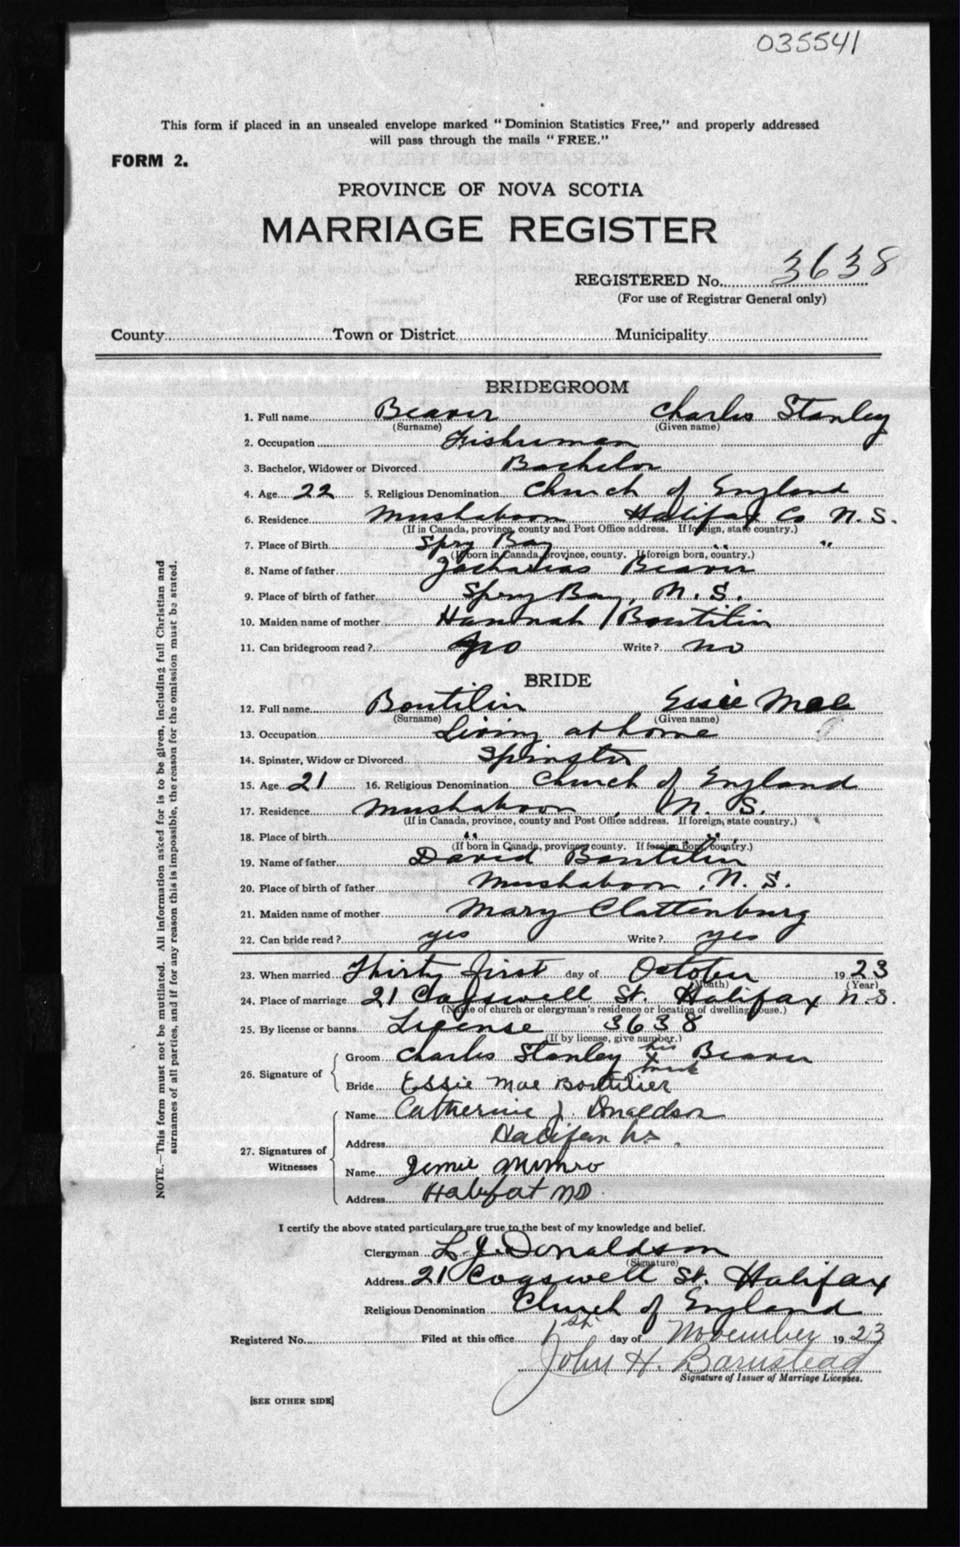 035541
This form if placed in an unsealed envelope marked "Dominion Statistics Free," and properly addressed
will pass through the mails "FREE."
FORM 2.
PROVINCE OF NOVA SCOTIA
MARRIAGE REGISTER
REGISTERED No. 3638
(For use of Registrar General only)
County Town or District Municipality
BRIDEGROOM
1. Full name Beaver Charles Stanley
(Surname) (Given name)
2. Occupation Fisherman
3. Bachelor, Widower or Divorced Bachelor
4. Age 22 5. Religious Denomination Church of England
6. Residence Mushaboon Halifax Co N.S.
(If in Canada, province, county and Post Office address. If foreign, state country.)
7. Place of Birth Spry Bay " "
(If born in Canada, province, county. If foreign born, country.)
8. Name of father Zacharias Beaver
9. Place of birth of father Spry Bay, N.S.
10. Maiden name of mother Hannah Boutilin
11. Can bridegroom read? no Write? no
BRIDE
12. Full name Boutilin Essie Mae
(Surname) (Given name)
13. Occupation Living at home
14. Spinster, Widow or Divorced Spinster
15. Age 21 16. Religious Denomination Church of England
17. Residence Mushaboon, N.S.
(If in Canada, province, county and Post Office address. If foreign, state country.)
18. Place of birth "
(If born in Canada, province, county. If foreign born, country.)
19. Name of father David Boutilin
20. Place of birth of father Mushaboon, N.S.
21. Maiden name of mother Mary Clattenburg
22. Can bride read? yes Write? yes
23. When married Thirty first day of October 1923
(Month) (Year)
24. Place of marriage 21 Cogswell St. Halifax N.S.
(Name of church or clergyman's residence or location of dwelling house.)
25. By license or banns License 3638
(If by license, give number.)
his
26. Signature of Groom Charles Stanley x Beaver
mark
Bride Essie Mae Boutilier
27. Signatures of Witnesses Name Catherine J Donaldson
Address Halifax N.S.
Name Jimie Munro
Address Halifax NS
I certify the above stated particulars are true to the best of my knowledge and belief.
Clergyman L. J. Donaldson
(Signature)
Address 21 Cogswell St. Halifax
Religious Denomination Church of England
Registered No. Filed at this office 1st day of November 1923
John H. Barnstead
Signature of Issuer of Marriage Licenses.
[SEE OTHER SIDE]
NOTE.—This form must not be mutilated. All information asked for is to be given, including full Christian and
surnames of all parties, and if for any reason this is impossible, the reason for the omission must be stated.